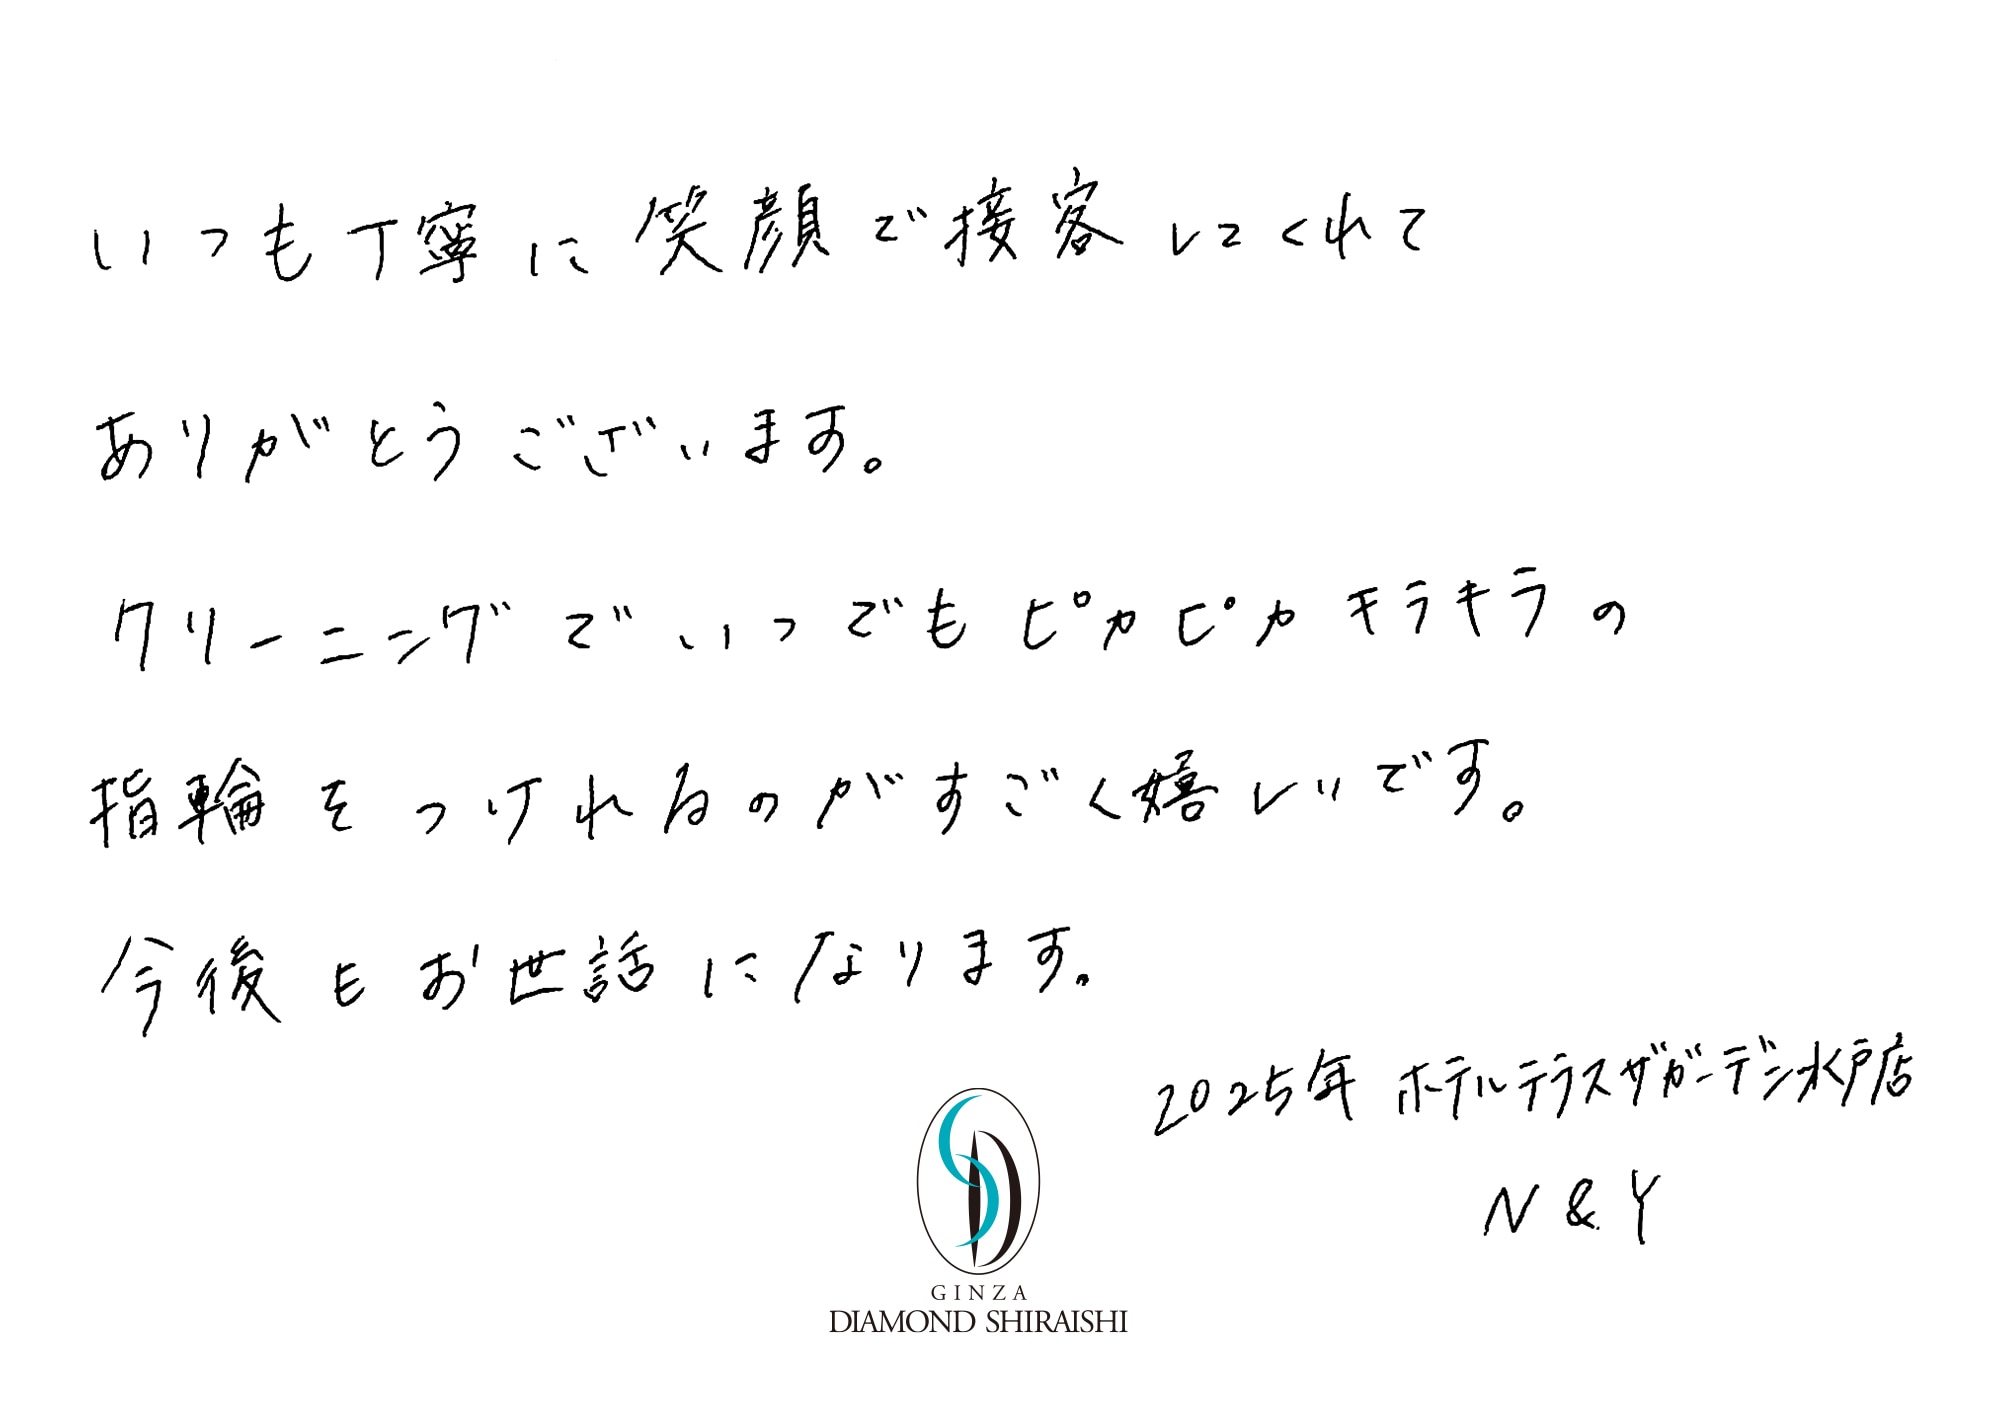 いつも丁寧に笑顔で接客してくれて
ありがとうございます。
クリーニングでいつでもピカピカキラキラの
指輪をつけれるのがすごく嬉しいです。
今後もお世話になります。
2025年 ホテルテラスザガーデン水戸店
N & Y
GINZA
DIAMOND SHIRAISHI